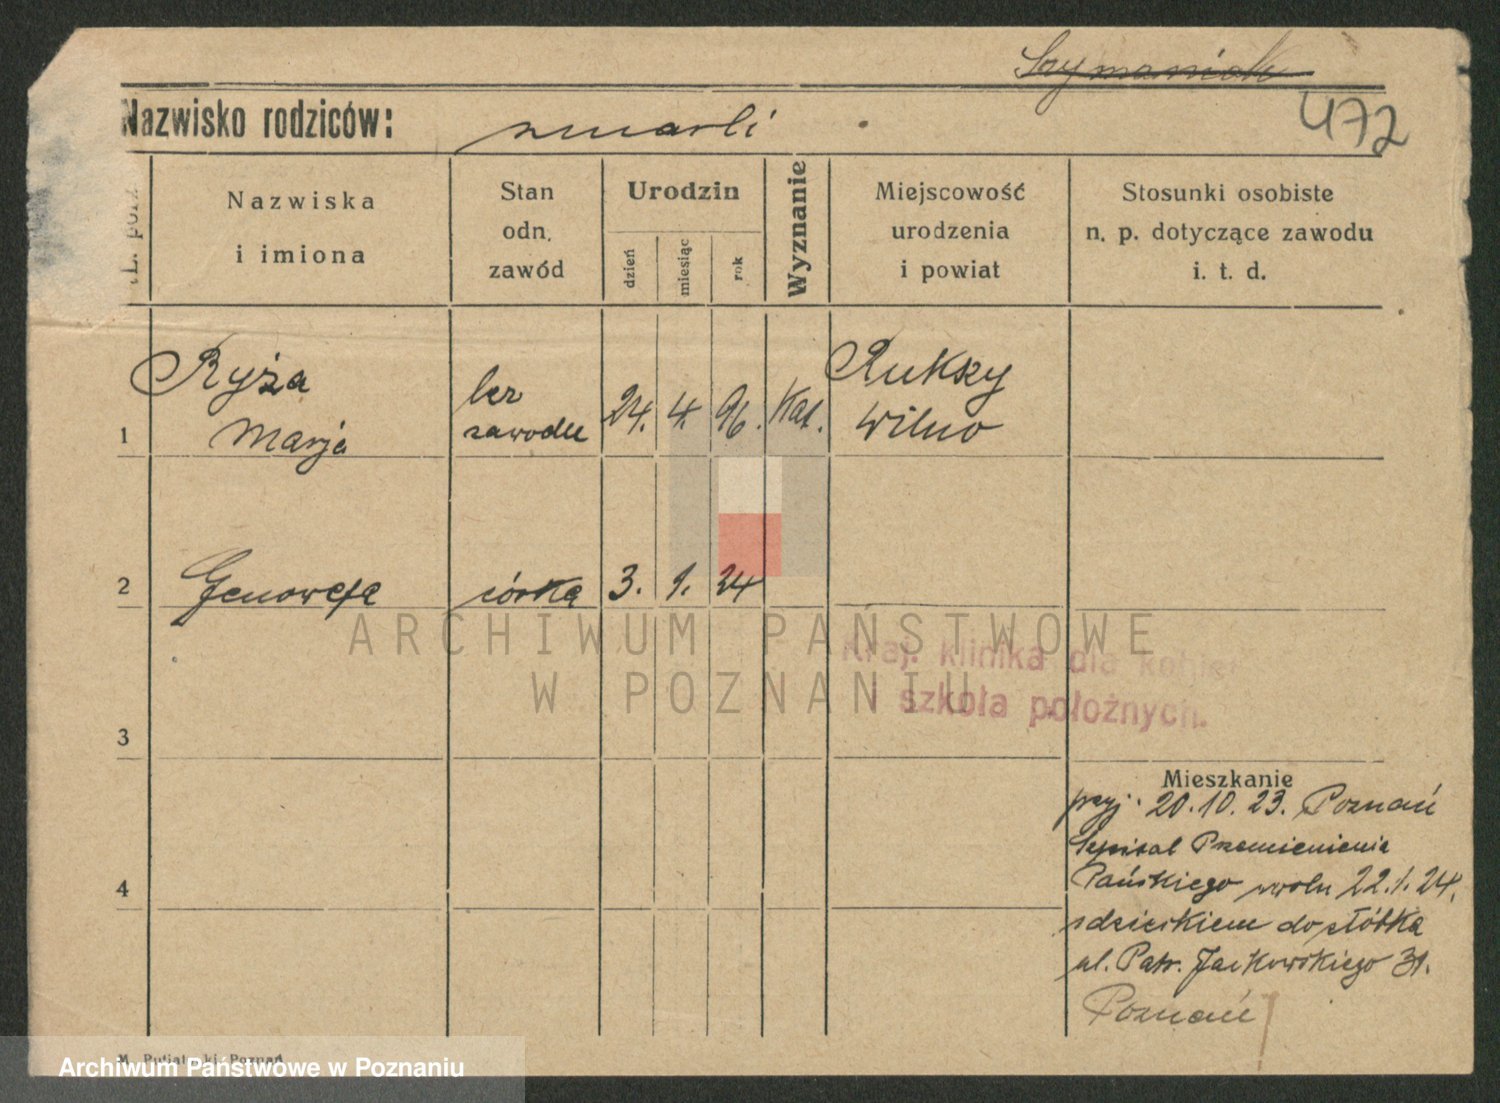 Szymaniak
472
Nazwisko rodziców: zmarli
L. porz.
Nazwiska
i imiona
Stan
odn.
zawód
Urodzin
dzień
miesiąc
rok
Wyznanie
Miejscowość
urodzenia
i powiat
Stosunki osobiste
n. p. dotyczące zawodu
i. t. d.
1 Ryża
Marja
bez
zawodu
24. 4. 96. Kat.
Rukszy
Wilno
2 Genowefa córka 3. 1. 24
ARCHIWUM PAŃSTWOWE
W POZNANIU
Kraj. klinika dla kobiet
i szkoła położnych.
3
Mieszkanie
przyj. 20.10.23. Poznań
Szpital Przemienienia
Pańskiego zwoln 22.1.24.
z dzieckiem do żłóbka
ul. Patr. Jackowskiego 31.
Poznań
4
M. Putiatycki, Poznań
Archiwum Państwowe w Poznaniu